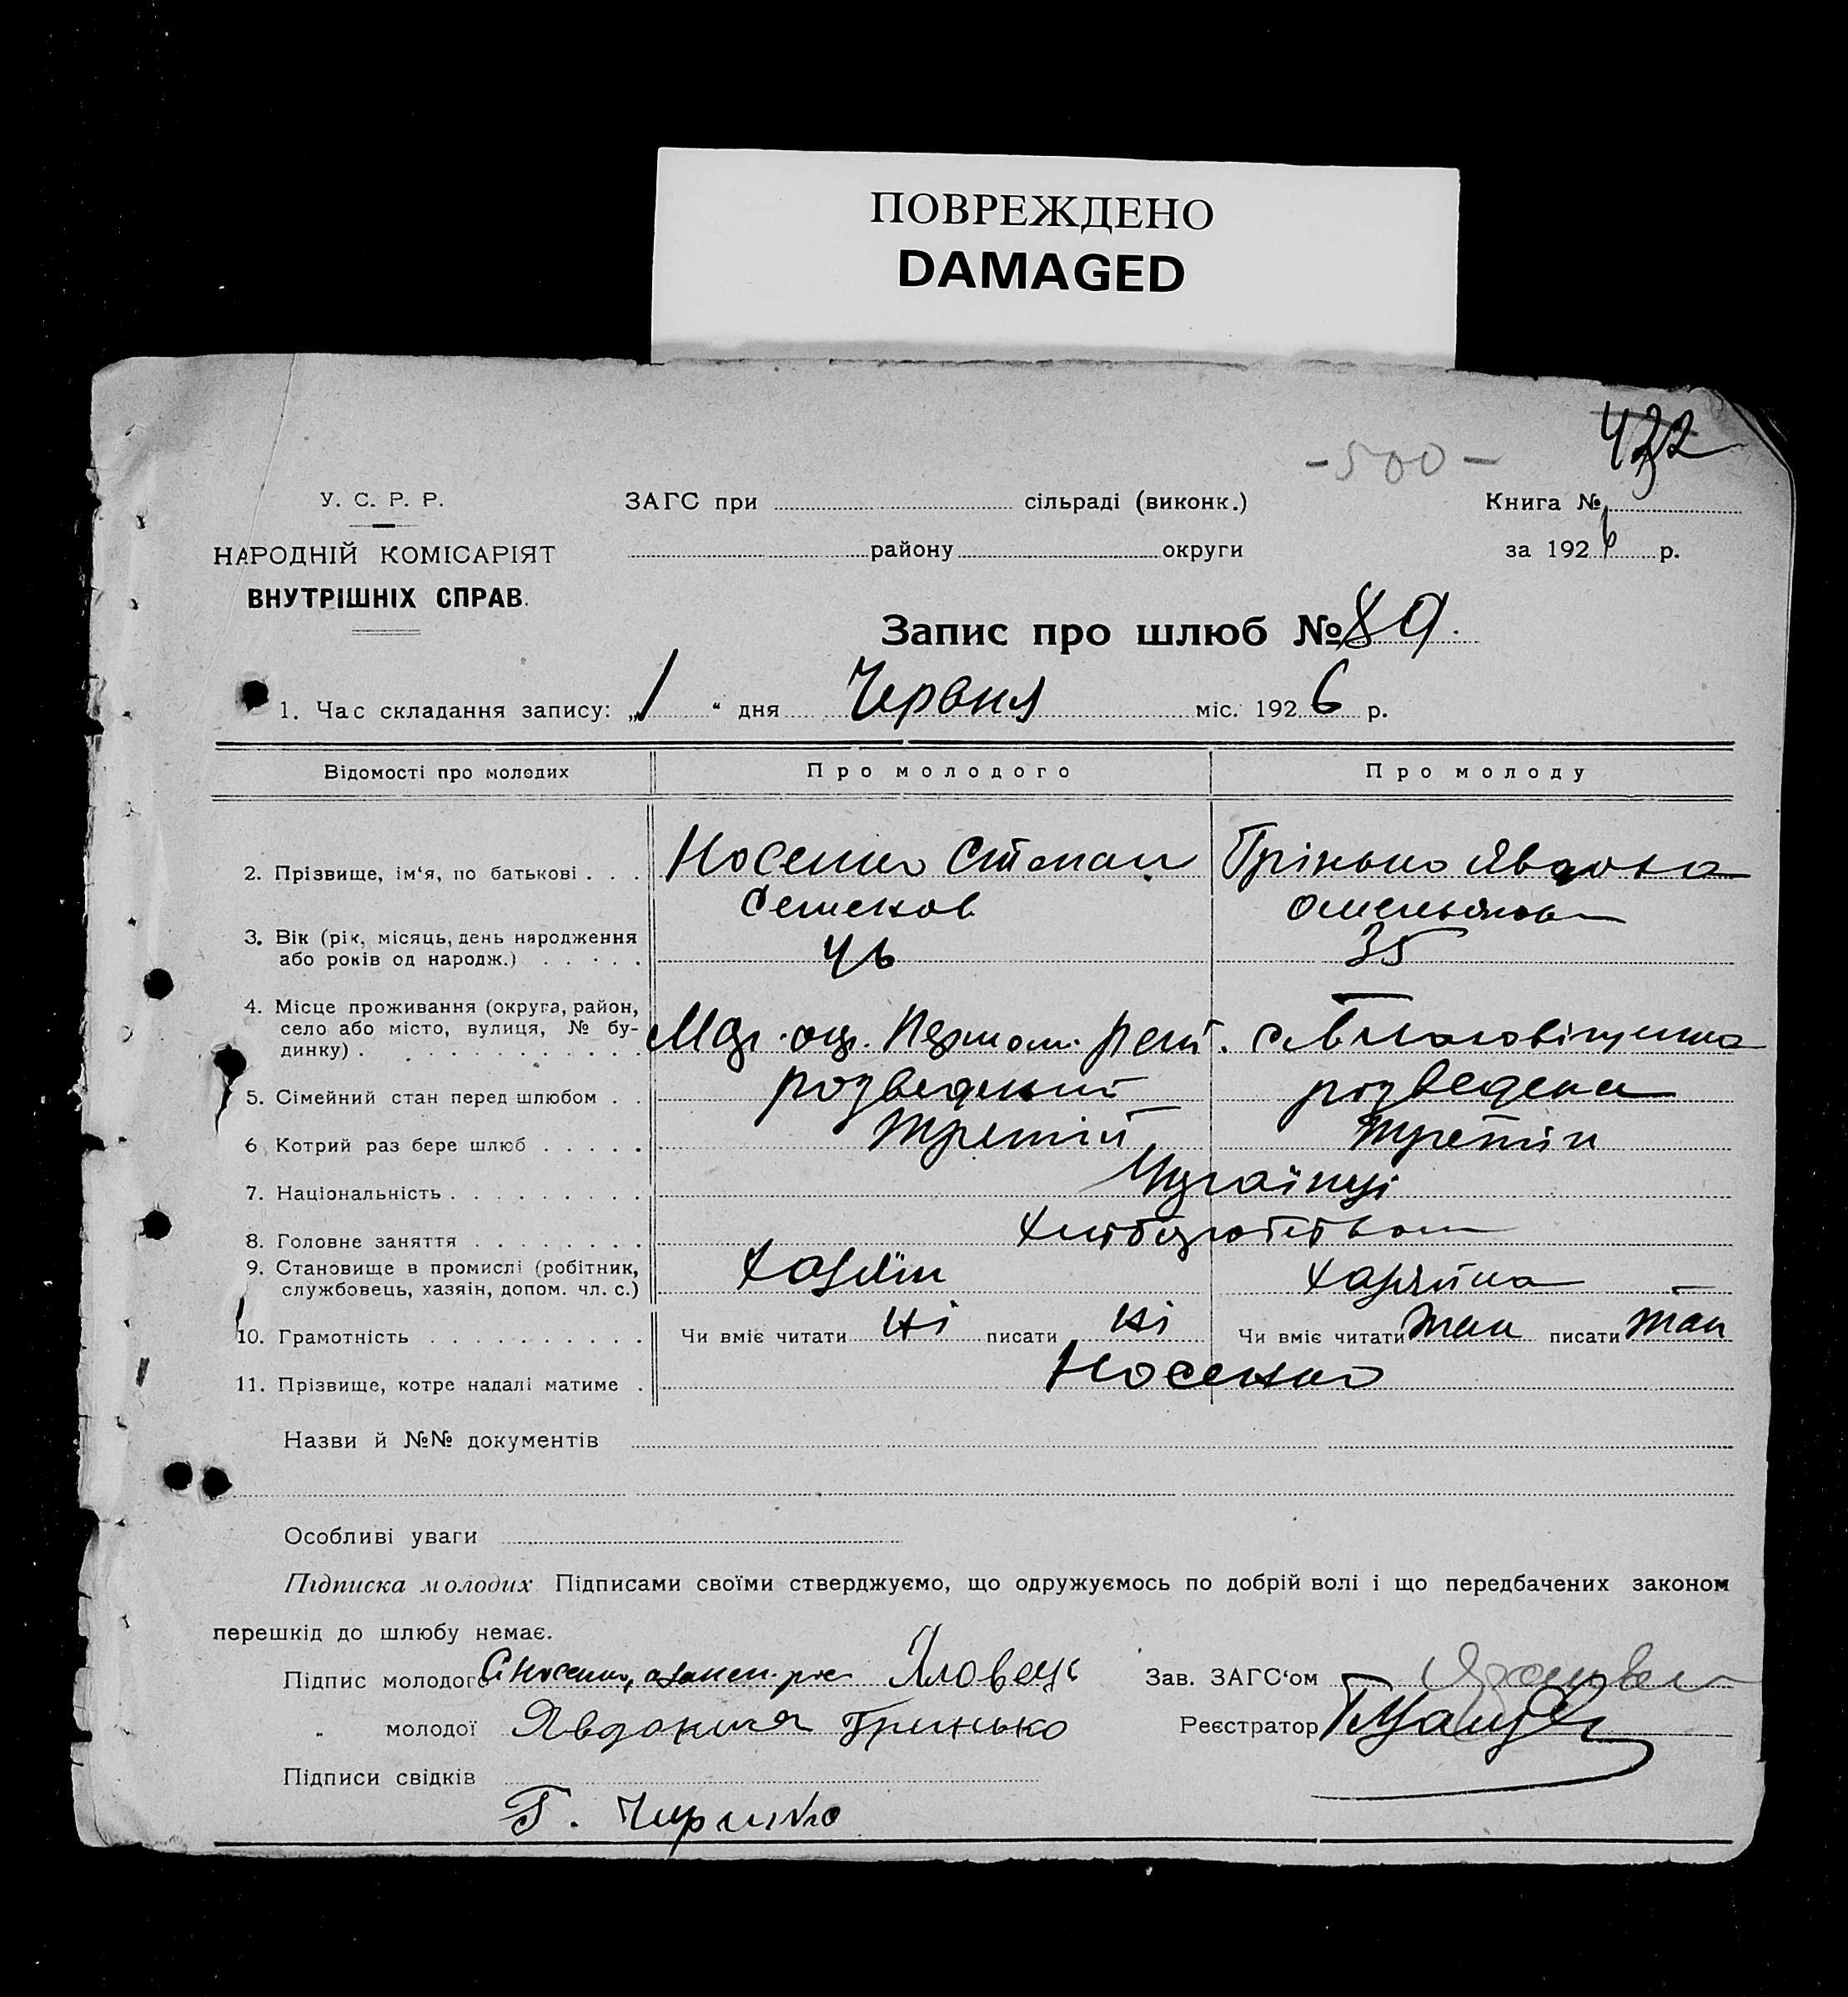 ПОВРЕЖДЕНО
DAMAGED
-500-
У. С. Р. Р.
НАРОДНІЙ КОМІСАРІЯТ
ВНУТРІШНІХ СПРАВ.
ЗАГС при сільраді (виконк.)
району округи
Книга №
за 1926 р.
Запис про шлюб № 89.
1. Час складання запису: „1“ дня Червня міс. 1926 р.
Відомості про молодих Про молодого Про молоду
2. Прізвище, ім‘я, по батькові . . . Носенко Степан Грінько Явдоха
Семенов Омельянов
3. Вік (рік, місяць, день народження
або років од народж.) . . . . . 46 35
4. Місце проживання (округа, район,
село або місто, вулиця, № бу-
динку) . . . . . . . . . . . . Первом. с. Благовіщенка
5. Сімейний стан перед шлюбом . . розведений розведена
6 Котрий раз бере шлюб . . . . . Третій Третій
7. Національність . . . . . . . . . Українці
8. Головне заняття . . . . . . . . хліборобством
9. Становище в промислі (робітник,
службовець, хазяін, допом. чл. с.) Хазяїн Хазяйка
10. Грамотність . . . . . . . . . . Чи вміє читати ні писати ні Чи вміє читати так писати так
11. Прізвище, котре надалі матиме . Носенко
Назви й №№ документів
Особливі уваги
Підписка молодих Підписами своїми стверджуємо, що одружуємось по добрій волі і що передбачених законом
перешкід до шлюбу немає.
Підпис молодого С Носенко, а Яловець Зав. ЗАГС‘ом
„ молодої Явдокия Гринько Реєстратор
Підписи свідків
Г.